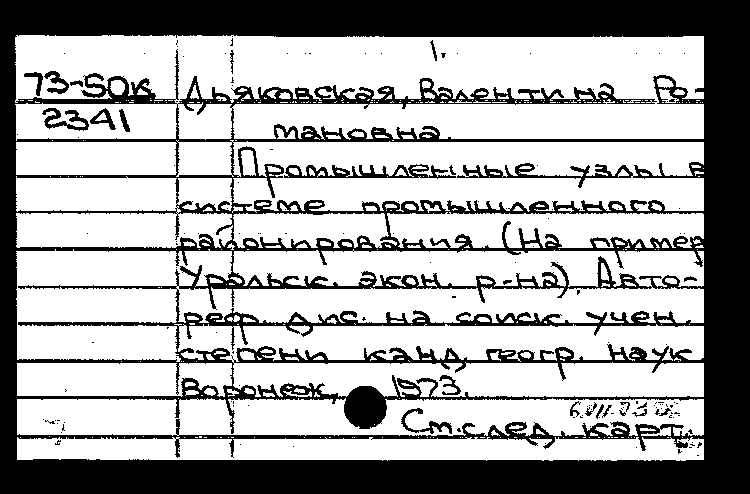 1.
73-SOK Дьяковская, Валентина Ро-
2341 мановна.
Промышленные узлы в
системе промышленного
районирования. (На пример
Уральск. экон. р-на). Авто-
реф. дис. на соиск. учен.
степени канд. геогр. наук.
Воронеж, 1973.
См.след. карт.